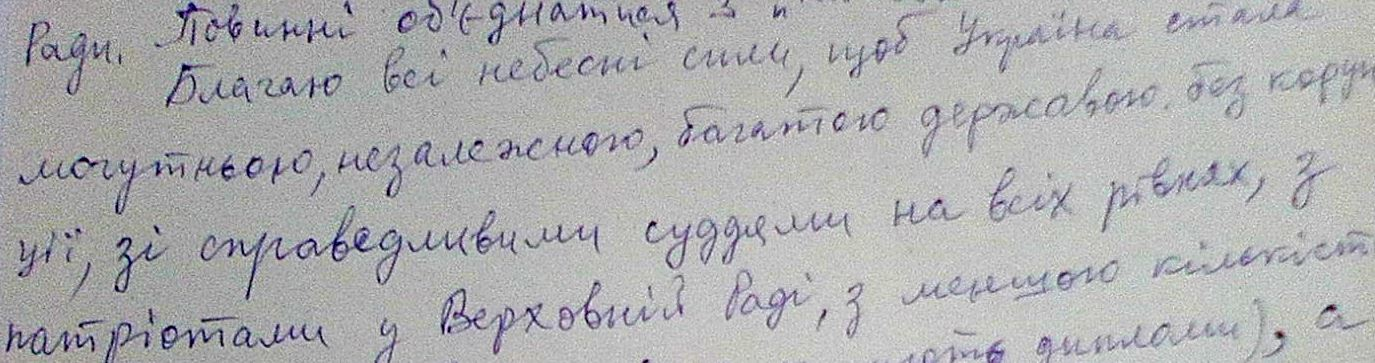 Ради. Повинні об'єднатися з
Благаю всі небесні сили, щоб Україна стала
могутньою, незалежною, багатою державою без коруп
ції, зі справедливими суддями на всіх рівнях, з
патріотами у Верховній Раді, з меншою кількіст
дипломи), а